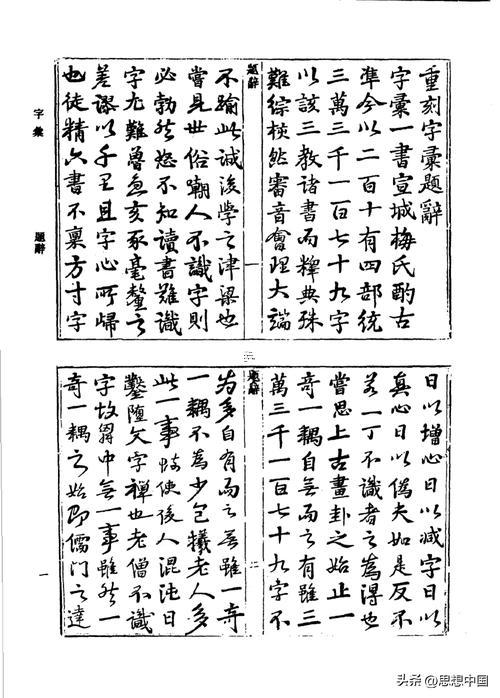 重刻字彙題辭
字彙一書宣城梅氏酌古
準今以二百十有四部統
三萬三千一百七十九字
以該三教諸書而釋典殊
難綜核然審音會理大端
題辭
一
不踰此誠後學之津梁也
嘗見世俗嘲人不識字則
必勃然怒不知讀書難識
字尤難魯魚亥豕毫釐之
差謬以千里且字心所歸
也徒精六書不稟方寸字
字彙
題辭
三
日以增心日以減字日以
真心日以偽夫如是反不
若一丁不識者之為得也
嘗思上古畫卦之始止一
奇一耦自無而之有雖三
萬三千一百七十九字不
題辭
二
為多自有而之無雖一奇
一耦不為少包犧老人多
此一事致使後人混沌日
鑿墮文字禪也老僧不識
字故胷中無一事雖然一
奇一耦之始即儒門之達
一
头条 @思想中国